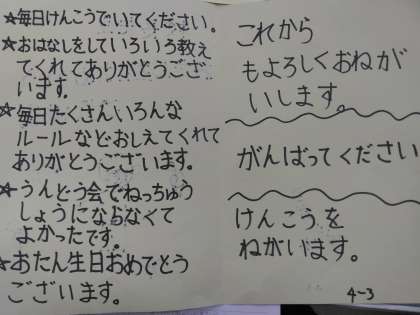 ★毎日けんこうでいてください。
★おはなしをしていろいろ教え
てくれてありがとうござ
います。
★毎日たくさんいろんな
ルールなどおしえてくれて
ありがとうございます。
★うんどう会でねっちゅう
しょうにならなくて
よかったです。
★おたん生日おめでとう
ございます。
これから
もよろしくおねが
いします。
がんばってください
けんこうを
ねがいます。
4-3